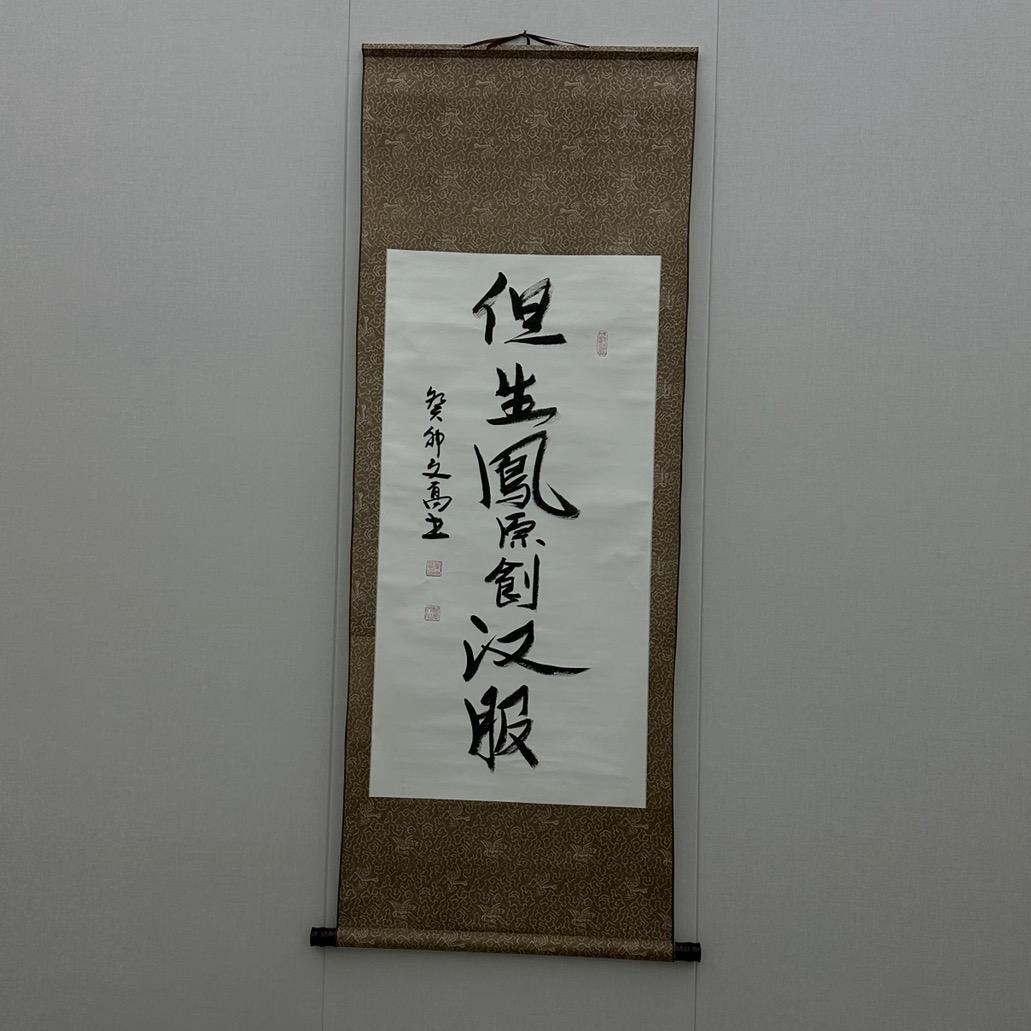 但生鳳原創汉服
癸卯文高书